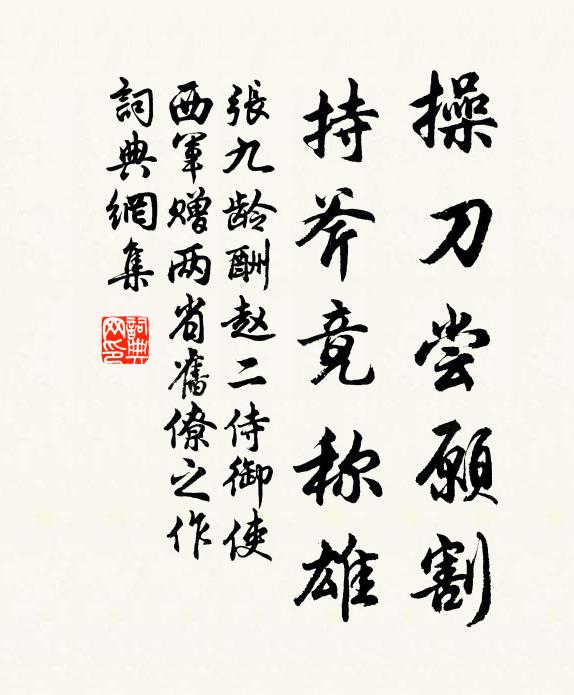 操刀尝願割
持斧竟称雄
張九龄酬赵二侍御使
西軍赠两省舊僚之作
詞典網集
詞典网印